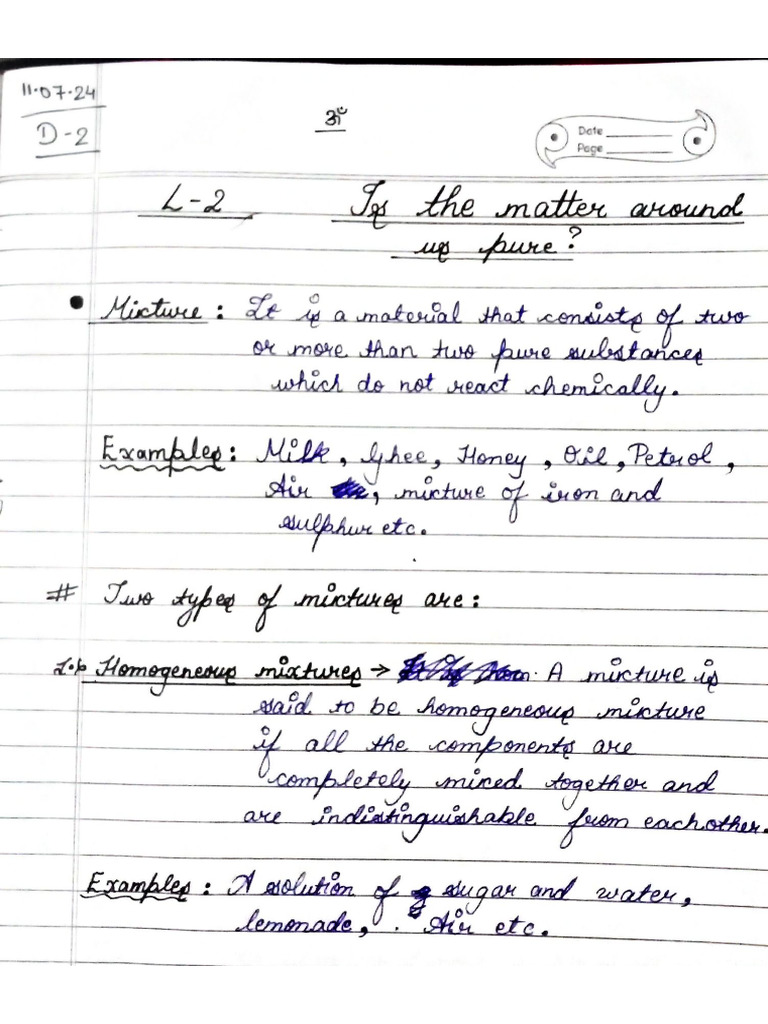 11.07.24
D-2
ॐ
Date
Page
L-2 Is the matter around
us pure?
• Mixture : It is a material that consists of two
or more than two pure substances
which do not react chemically.
Examples : Milk, Ghee, Honey, Oil, Petrol,
Air, mixture of iron and
sulphur etc.
# Two types of mixtures are :
1.) Homogeneous mixtures → A mixture is
said to be homogeneous mixture
if all the components are
completely mixed together and
are indistinguishable from each other.
Examples : A solution of sugar and water,
lemonade, Air etc.